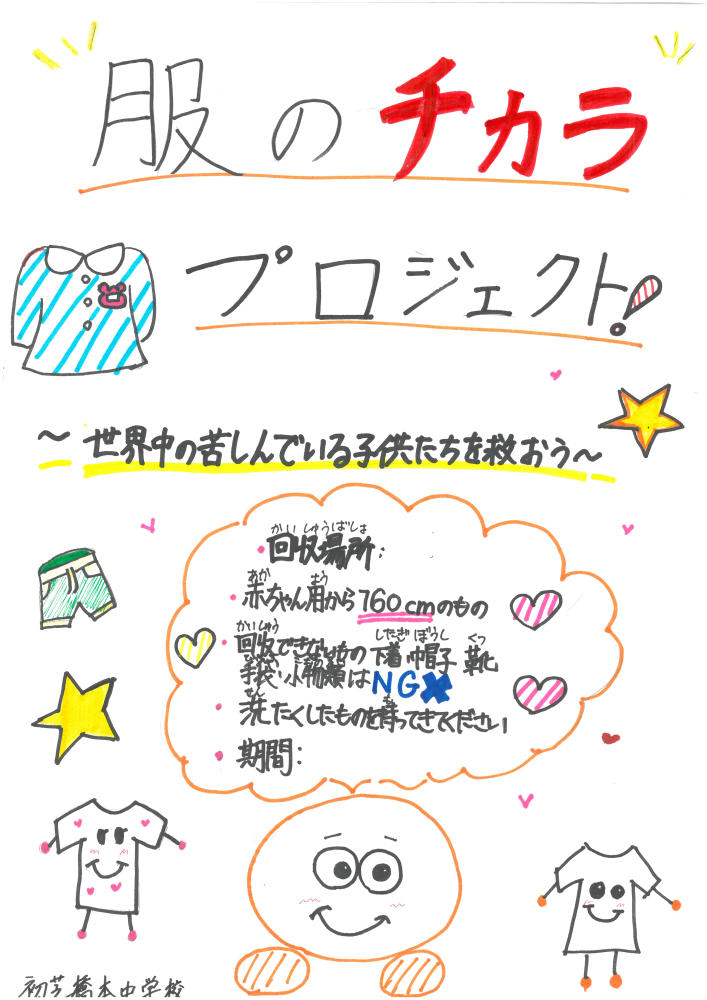 服のチカラ
プロジェクト!
～世界中の苦しんでいる子供たちを救おう～
かいしゅうばしょ
・回収場所:
あか よう
・赤ちゃん用から160cmのもの
かいしゅう したぎ ぼうし くつ
・回収できないもの 下着 帽子 靴
手袋 小物類はNG✖
せん も
・洗たくしたものを持ってきてください
・期間:
初芝橋本中学校